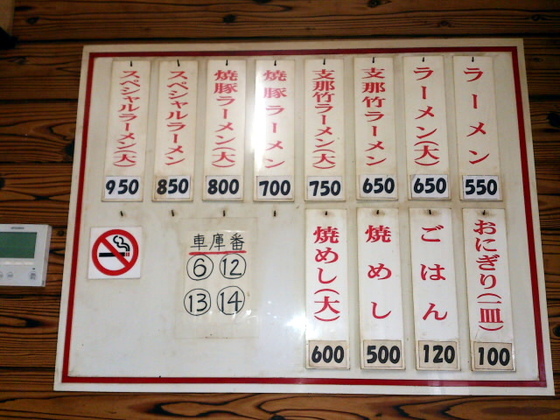 ラーメン
550
ラーメン(大)
650
支那竹ラーメン
650
支那竹ラーメン(大)
750
焼豚ラーメン
700
焼豚ラーメン(大)
800
スペシャルラーメン
850
スペシャルラーメン(大)
950
おにぎり(一皿)
100
ごはん
120
焼めし
500
焼めし(大)
600
車庫番
⑥ ⑫
⑬ ⑭